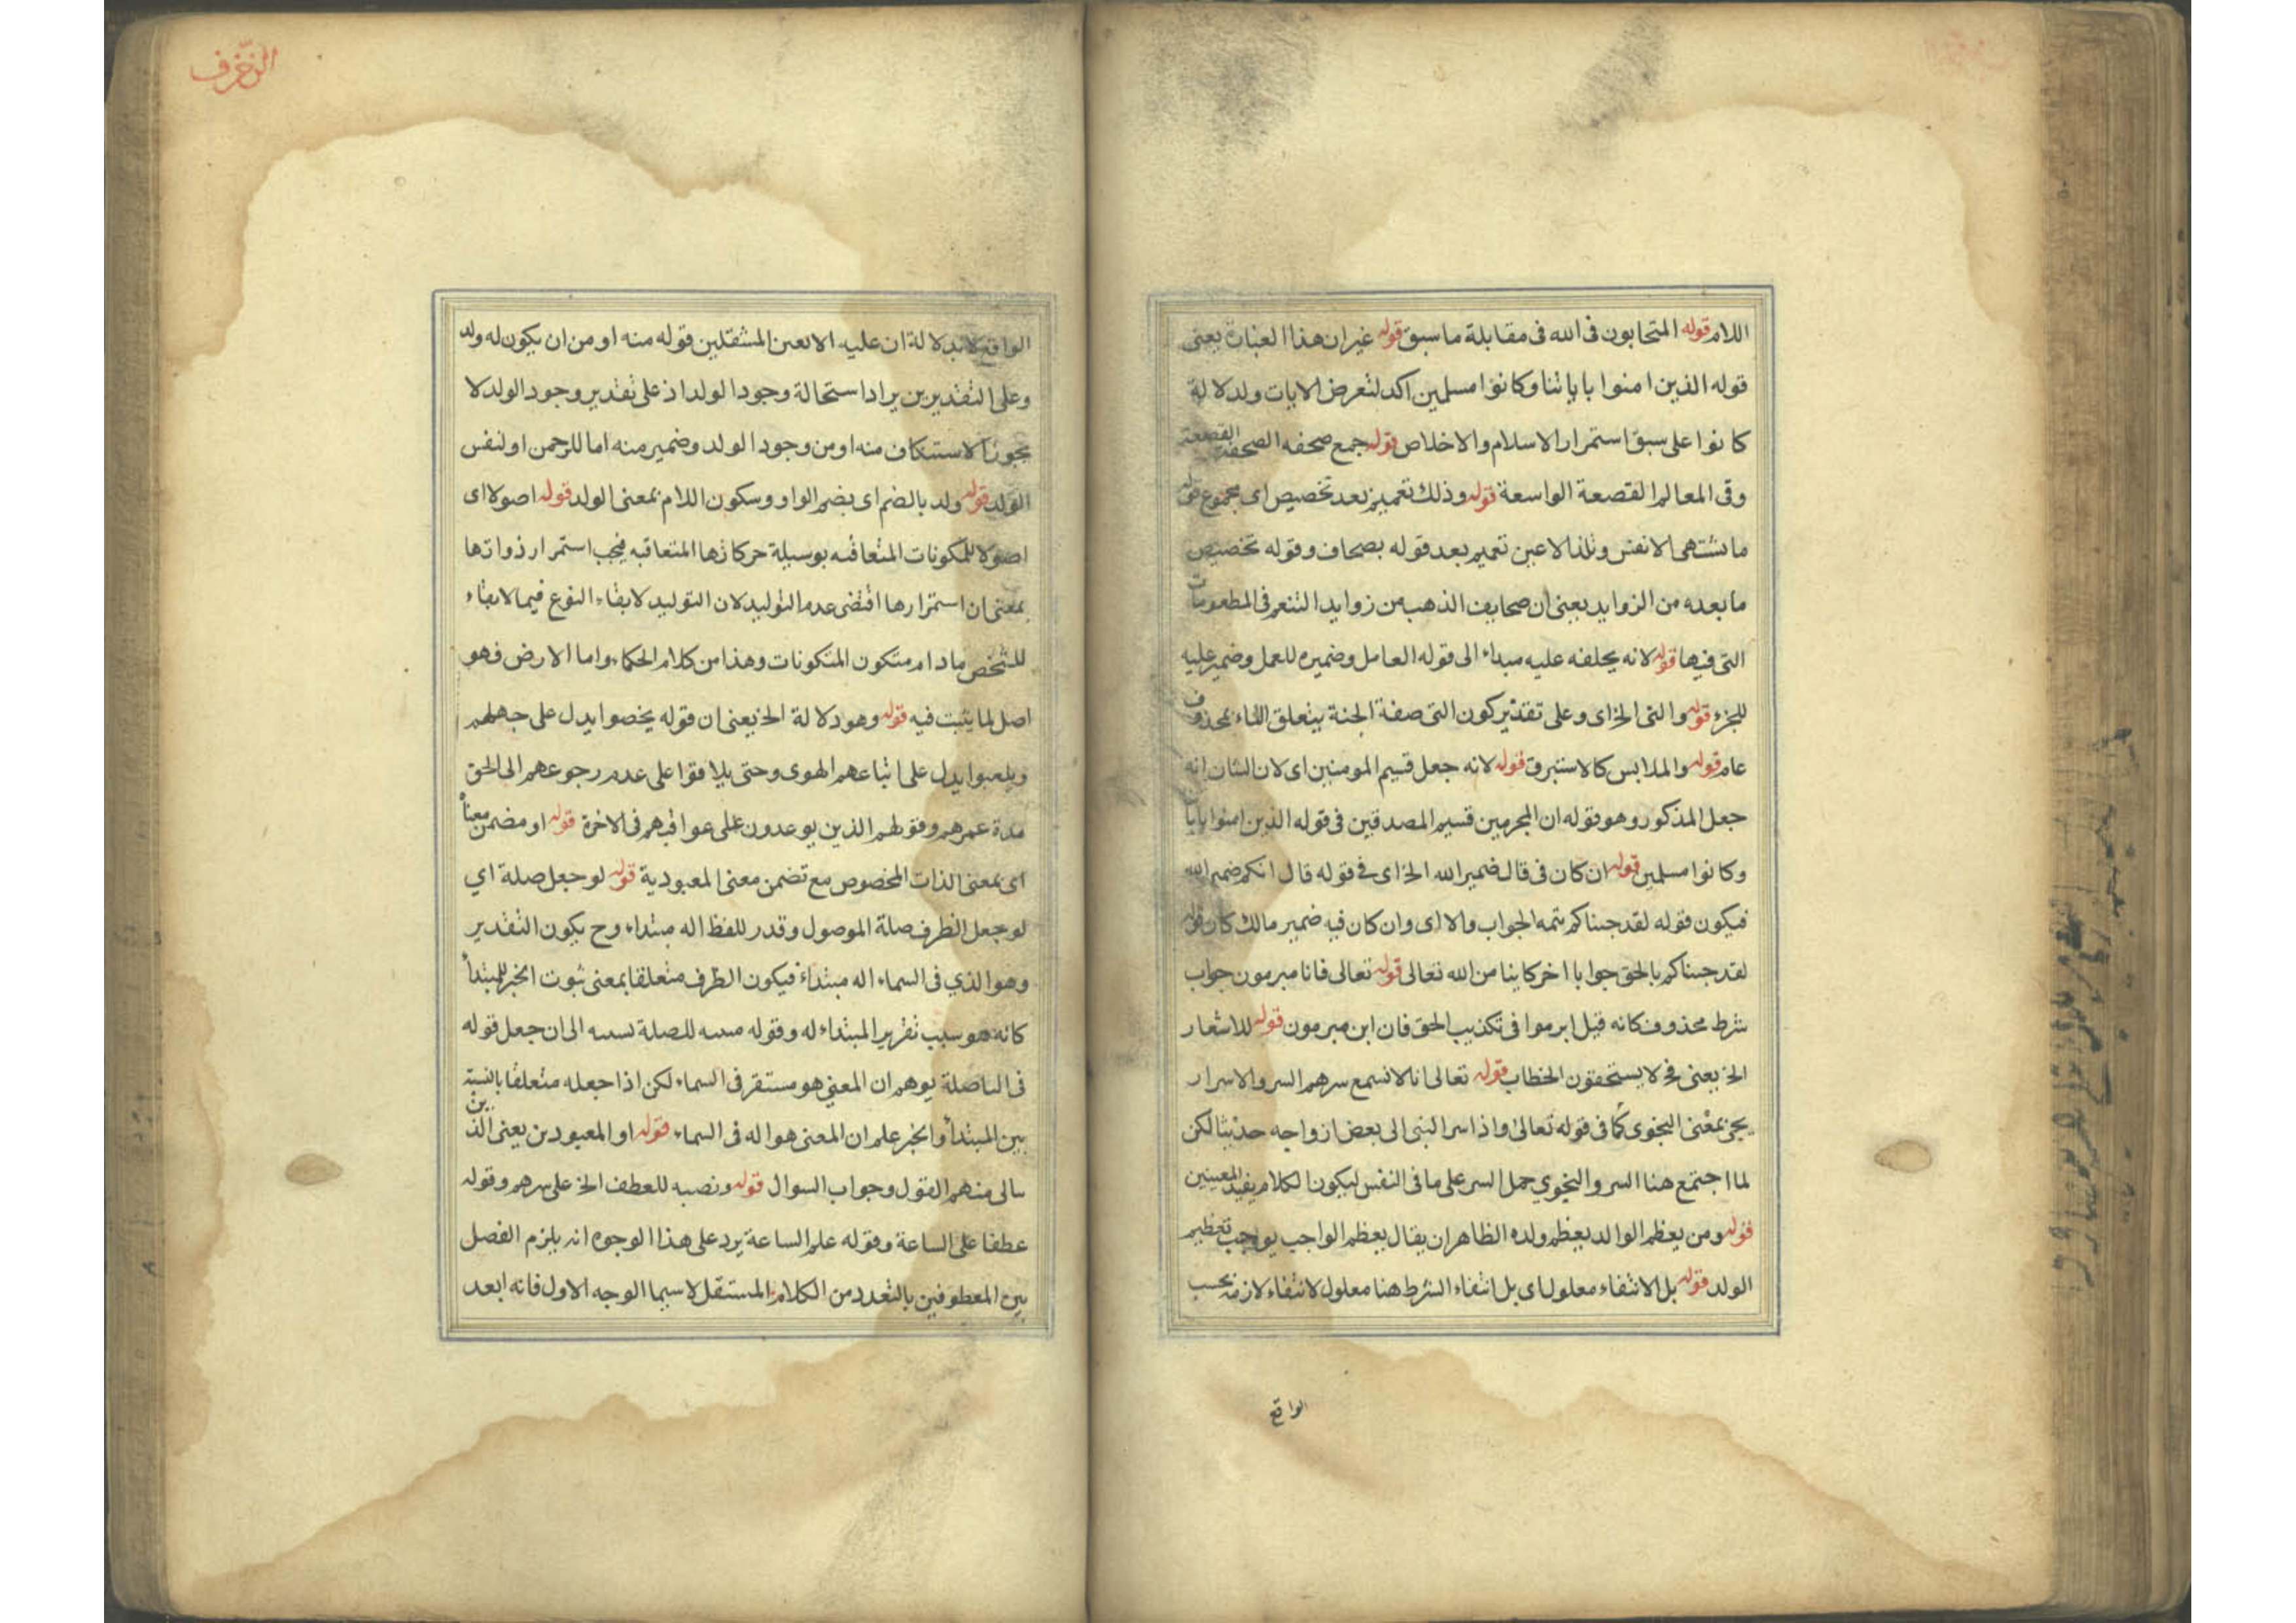 اللام قوله المتحابون فى الله فى مقابلة ما سبق قوله غير ان هذا العبارة يعنى
قوله الذين امنوا باياتنا وكانوا مسلمين اكد لتعرض الايات ولدلالة
كانوا على سبق استمرار الاسلام والاخلاص قوله جمع صحفه الصحفة القصعة
وفى المعالم القصعة الواسعة قوله وذلك تعميم بعد تخصيص اى مجموع قوله
ما تشتهى الانفس وتلذ الاعين تعميم بعد قوله بصحاف وقوله تخصيص
ما بعده من الزوايد يعنى ان صحايف الذهب من زوايد التنعم فى المطعومات
التى فيها قوله لانه يخلفه عليه مبداء الى قوله العامل وضميره للعمل وضمير عليه
للجزء قوله والتى الخ اى وعلى تقدير كون التى صفة الجنة يتعلق الباء بمحذوف
عام قوله والملابس كالاستبرق قوله لانه جعل قسيم المومنين اى لان الشان انه
جعل المذكور وهو قوله ان المجرمين قسيم المصدقين فى قوله الذين امنوا باياتنا
وكانوا مسلمين قوله ان كان فى قال ضمير الله الخ اى فى قوله قال انكم ضمير الله
فيكون قوله لقد جئناكم تتمه الجواب والا اى وان كان فيه ضمير مالك كان قوله
لقد جئناكم بالحق جوابا اخر كاينا من الله تعالى قوله تعالى فانا مبرمون جواب
شرط محذوف كانه قيل ابرموا فى تكذيب الحق فان ابن مبرمون قوله للاشعار
الخ يعنى فح لا يستحقون الخطاب قوله تعالى انا لا نسمع سرهم السر والاسرار
يجئ بمعنى النجوى كما فى قوله تعالى واذ اسر النبى الى بعض ازواجه حديثا لكن
لما اجتمع هنا السر والنجوي حمل السر على ما فى النفس ليكون الكلام يفيد المعنيين
قوله ومن يعظم الوالد يعظم ولده الظاهر ان يقال يعظم الواجب يواجب تعظيم
الولد قوله بل الانتفاء معلول اى بل انتفاء الشرط هنا معلول لانتفاء لازمه بحسب
الواقع
الزخرف
الواقع لا بد لالة ان عليه الا لعين المثقلين قوله منه او من ان يكون له ولد
وعلى التقديرين يراد استحالة وجود الولد اذ على تقدير وجود الولد لا
يجوز الاستنكاف منه او من وجود الولد وضمير منه اما للرحمن او لنفس
الولد قوله ولد بالضم اى بضم الواو وسكون اللام بمعنى الولد قوله اصولا اى
اصولا للمكونات المتعاقبه بوسيلة حركاتها المتعاقبه فيجب استمرار ذواتها
بمعنى ان استمرارها اقتضى عدم التوليد لان التوليد لابقاء النوع فيما لا بقاء
للشخص مادام متكون المتكونات وهذا من كلام الحكماء واما الارض فهو
اصل لما يثبت فيه قوله وهو دلالة الخ يعنى ان قوله يخصوا يدل على جهلهم
ويلعبوا يدل على اتباعهم الهوى وحتى يلاقوا على عدم رجوعهم الى الحق
مدة عمرهم وقولهم الذين يوعدون على عواقبهم فى الاخرة قوله او مضمن معناً
اى بمعنى الذات المخصوص مع تضمن معنى المعبودية قوله لو جعل صلة اي
لو جعل الظرف صلة الموصول وقدر للفظ اله مبتداء وح يكون التقدير
وهو الذي فى السماء اله مبتداء فيكون الظرف متعلقا بمعنى ثبوت الخبر للمبتدأ
كانه هو سبب تقرير المبتداء له وقوله للصلة الى ان جعل قوله
فى السا صلة يوهم ان المعنى هو مستقر فى السماء لكن اذا جعله متعلقا بالنسبة
بين المبتدأ والخبر علم ان المعنى هو اله فى السماء قوله او المعبودين يعنى الذين
سالى منهم القول وجواب السوال قوله ونصبه للعطف الخ على سرهم وقوله
عطفا على الساعة وقوله علم الساعة يرد على هذا الوجوه انه يلزم الفصل
بين المعطوفين بالتعدد من الكلام المستقل لا سيما الوجه الاول فانه ابعد